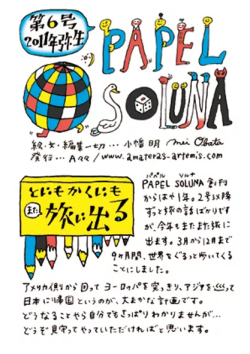 第6号
2011年弥生
PAPEL
SOLUNA
絵・文・編集一切…小幡 明 mei Obata
発行… Aaa / www.amateras-artemis.com
とにもかくにも
また 旅に出る
パペル ソルナ
PAPEL SOLUNA 創刊
からはや1年。2号以降
ずっと旅の話ばかりです
が、今年もまた旅に
出ます。3月から12月まで
9ヶ月間、世界をぐるっと歩いてくる
ことにしました。
アメリカ側から回ってヨーロッパを突っきり、アジアをくぐって
日本に帰国というのが、大まかな計画です。
どうなることやら自分でもさっぱりわかりませんが…
どうぞ見守ってやっていただければと思います。